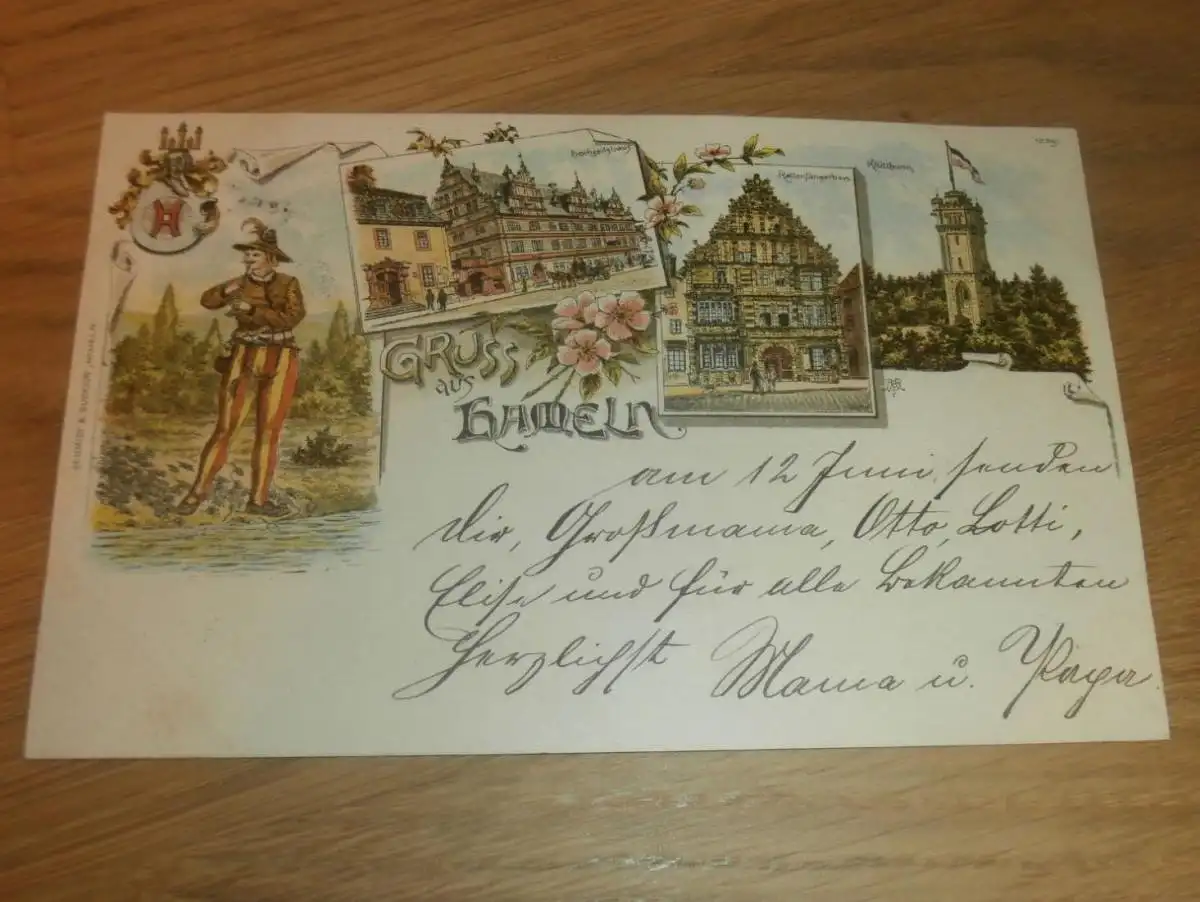 H
Hochzeitshaus
Rattenfängerhaus
Klütthurm
GRUSS
aus
HAMELN
am 12 Juni senden
Dir, Großmama, Otto, Lotti,
Elise und für alle Bekannten
Herzlichst Mama u. Papa.